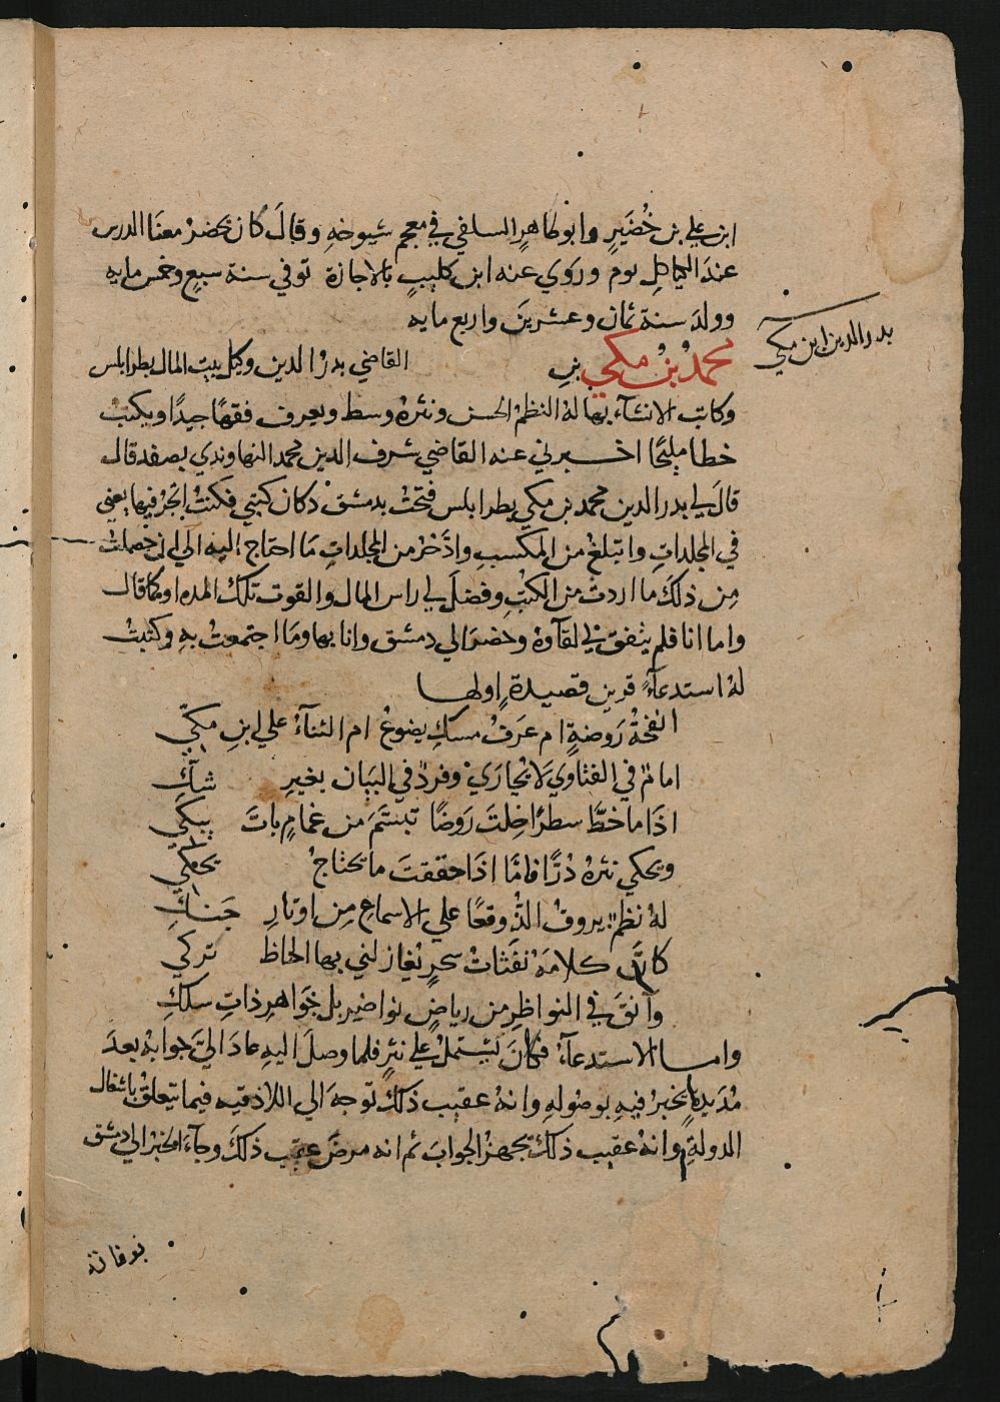 ابن علي بن خُضَيرٍ وابوطاهرٍ السلفي في معجم شيوخهِ وقالَ كان يحضرُ معنَا الدرس
عندَ الكيا كل يوم وروي عنه ابن كليبٍ بالاجازة توفي سنة سبعٍ وخمس مايه
وولدَ سنة ثمان وعشرينَ واربع مايه
بدر الدين ابن مكي
محمدُ بنُ مكي بنِ القاضي بدرُ الدين وكيل بيت المال بطرابلس
وكاتب الانشآء بها لهُ النظمُ الحسن ونثرهُ وسط ويعرف فقهًا جيدًا ويكتبُ
خطا مليحًا اخبرني عنه القاضي شرف الدين محمد النهاوندي بصفد قال
قالَ لي بدر الدين محمد بن مكي بطرابلس فتحتُ بدمشق دكان كتبي فكنتُ اتجرُ فيها يعني
في المجلداتِ واتبلغُ من المكسبِ وادّخرُ من المجلداتِ مَا احتاج اليه الي ان حصلتُ
مِن ذلكَ ما اردتُ منَ الكتبِ وفضلَ لي راس المال والقوت تلكَ المده او كما قال
واما انا فلم يتفق لي لقآوهُ وحضرَ الي دمشق وانا بها ومَا اجتمعتُ بهِ وكتبتُ
لهُ استدعآءً قرين قصيدةٍ اولها
انفحةُ رَوضةٍ ام عَرَفُ مسكٍ يضوعُ ام الثنآءُ علي ابنِ مكّي
امامٌ في الفتاوي لَا يُجارَي وفردٌ في البَيان بغيرِ شكّ
اذَا ما خطَّ سطرًا خِلتَ رَوضًا تبسّمَ من غمامٍ باتَ يبكَي
ويحكي نثرهُ دُرًّا فامّا اذَا حققتَ ما يحتاجُ يحكي
لهُ نظمٌ يروقُ الذُّ وقعًا علي الاسماعِ مِن اوتارِ جَنكِ
كانَّ كلامَهُ نفَثاتُ سحرٍ تُغازلني بها الحاظُ تركي
وآنقَ في النواظرِ مِن رياضٍ نواضيرٍ بل جَوَاهرِ ذاتِ سلكِ
واما الاستدعآءُ فكانَ يشتملُ علي نثرٍ فلما وصلَ اليهِ عادَ اليَّ جوابهُ بعدَ
مُدَيدةٍ يخبرُ فيهِ بوصولهِ وانهُ عقيب ذلكَ توجهَ الي اللاذقيه فيما يتعلقُ باشغال
الدولةِ وانهُ عقيب ذلكَ يجهزُ الجوابَ ثم انه مرضَ عقيب ذلكَ وجآءَ الخبرُ الي دمشق
بوفاته